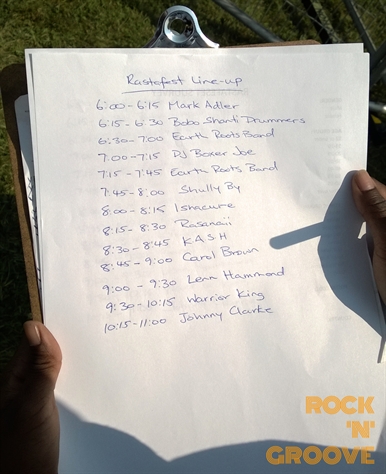 Rastafest Line-up
6:00 - 6:15 Mark Adler
6:15 - 6:30 Bobo Shanti Drummers
6:30 - 7:00 Earth Roots Band
7:00 - 7:15 DJ Boxer Joe
7:15 - 7:45 Earth Roots Band
7:45 - 8:00 Shully By
8:00 - 8:15 Ishacure
8:15 - 8:30 Rasanaii
8:30 - 8:45 KASH
8:45 - 9:00 Carol Brown
9:00 - 9:30 Lenn Hammond
9:30 - 10:15 Warrior King
10:15 - 11:00 Johnny Clarke
ROCK
'N'
GROOVE